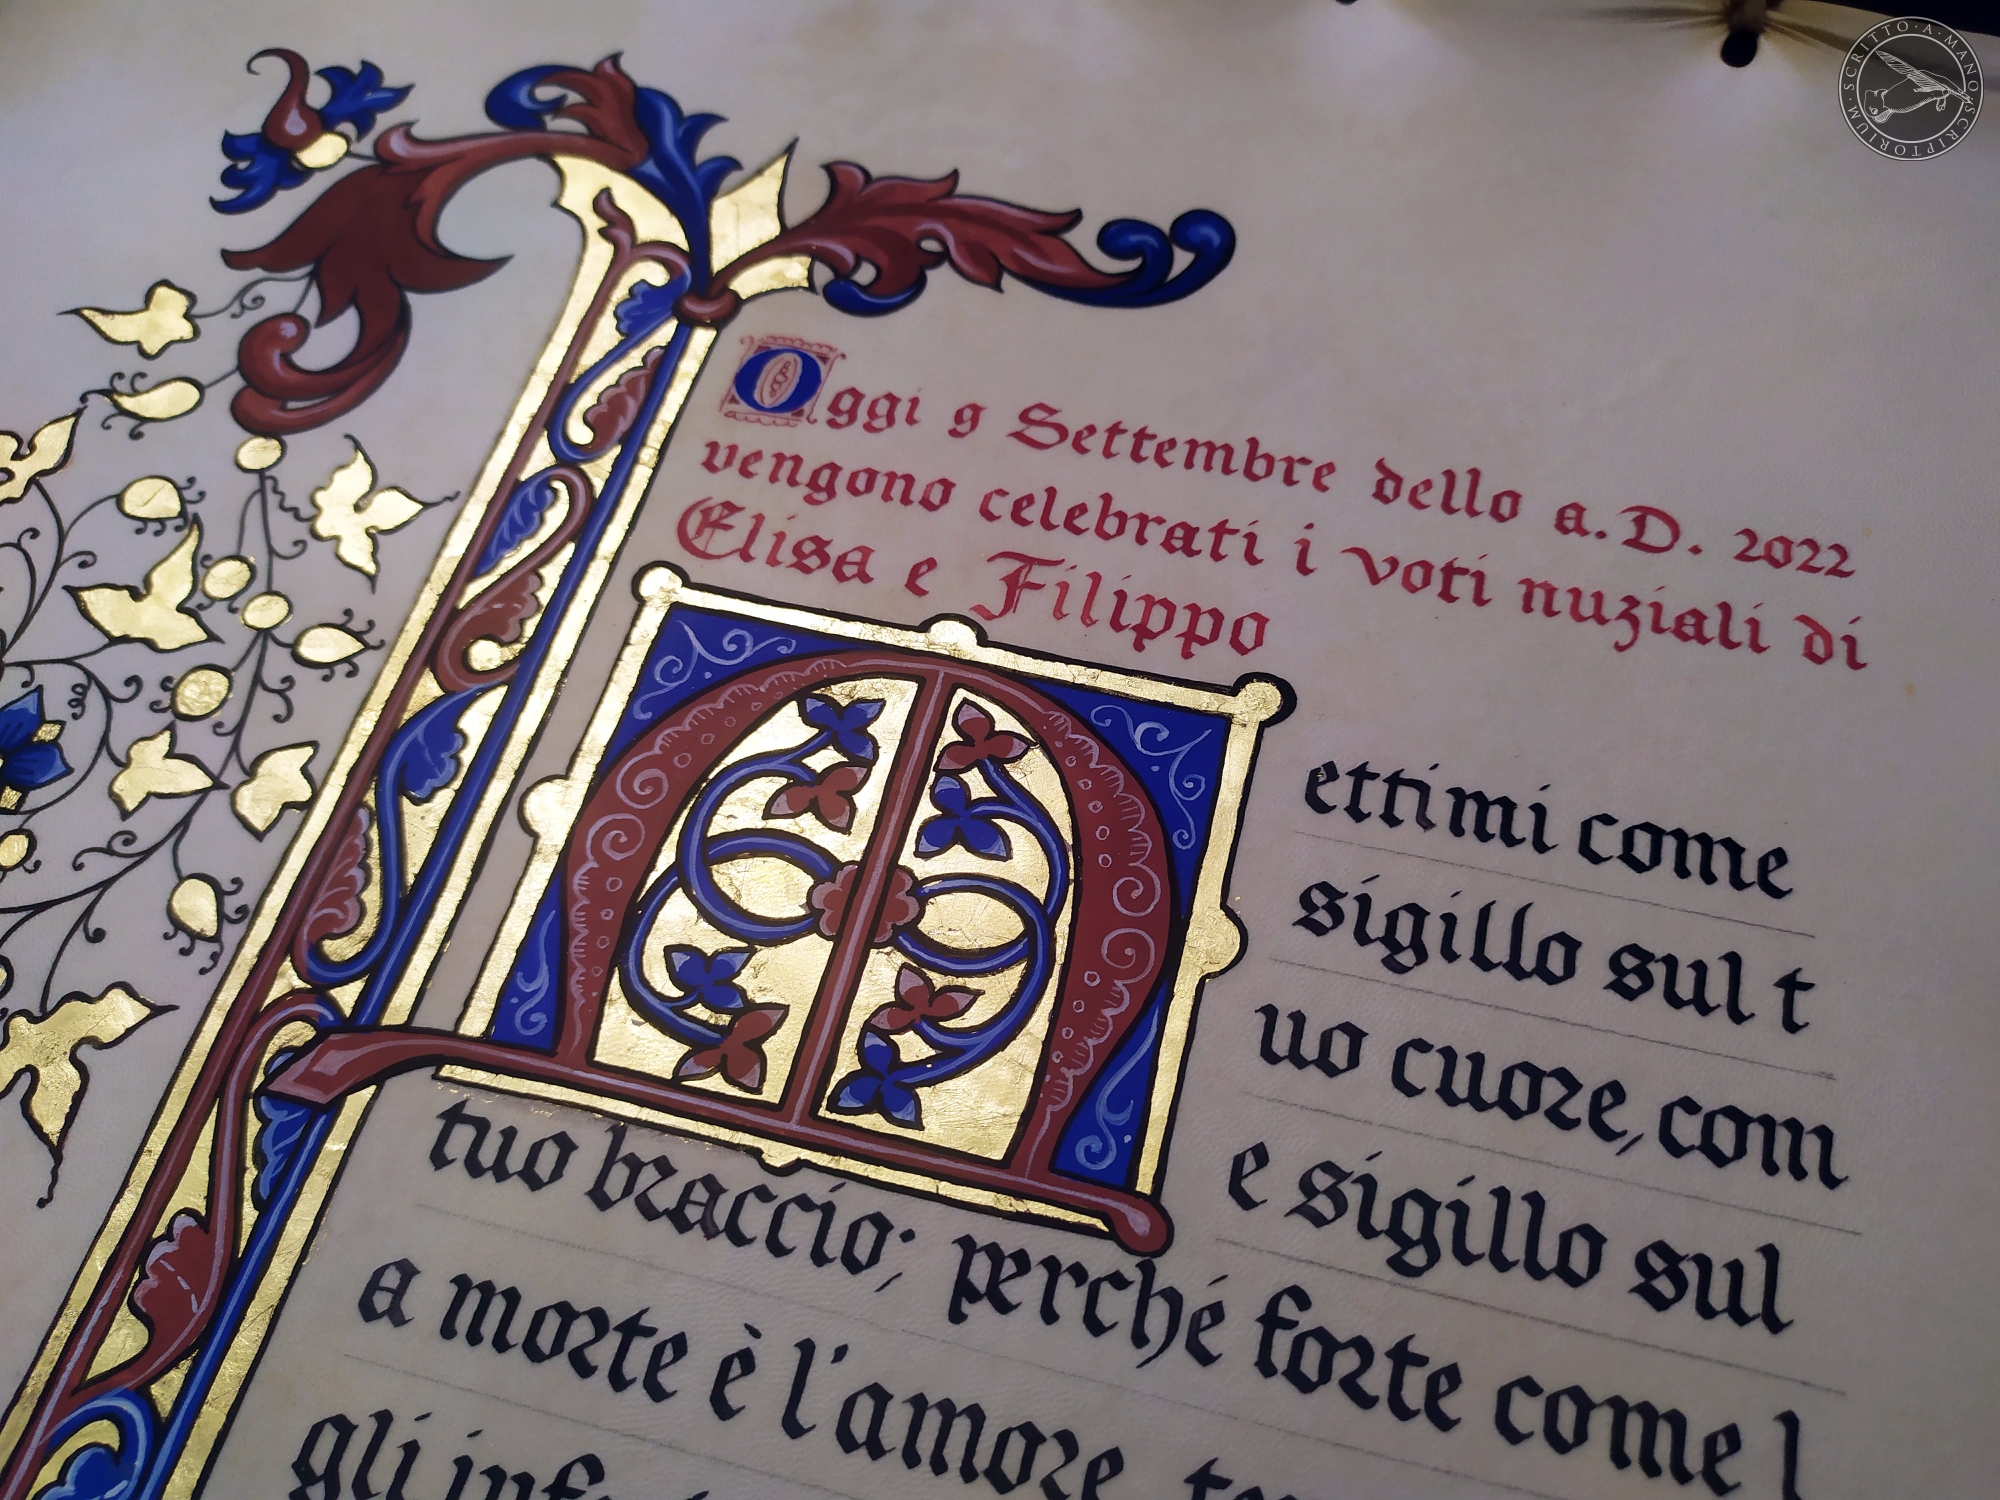 Oggi 9 Settembre dello a.D. 2022
vengono celebrati i voti nuziali di
Elisa e Filippo
Mettimi come
sigillo sul t
uo cuore, com
e sigillo sul
tuo braccio; perché forte come l
a morte è l'amore,
gli
SCRITTO·A·MANO·SCRIPTORIUM